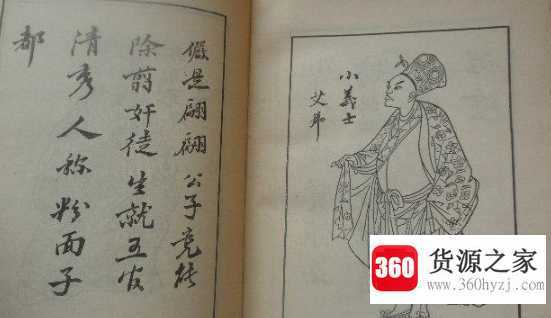 小義士
艾虎
儼是翩翩公子竟能
除剪奸徒生就五官
清秀人称粉面子
都
360 货源之家
www.360hyzj.com